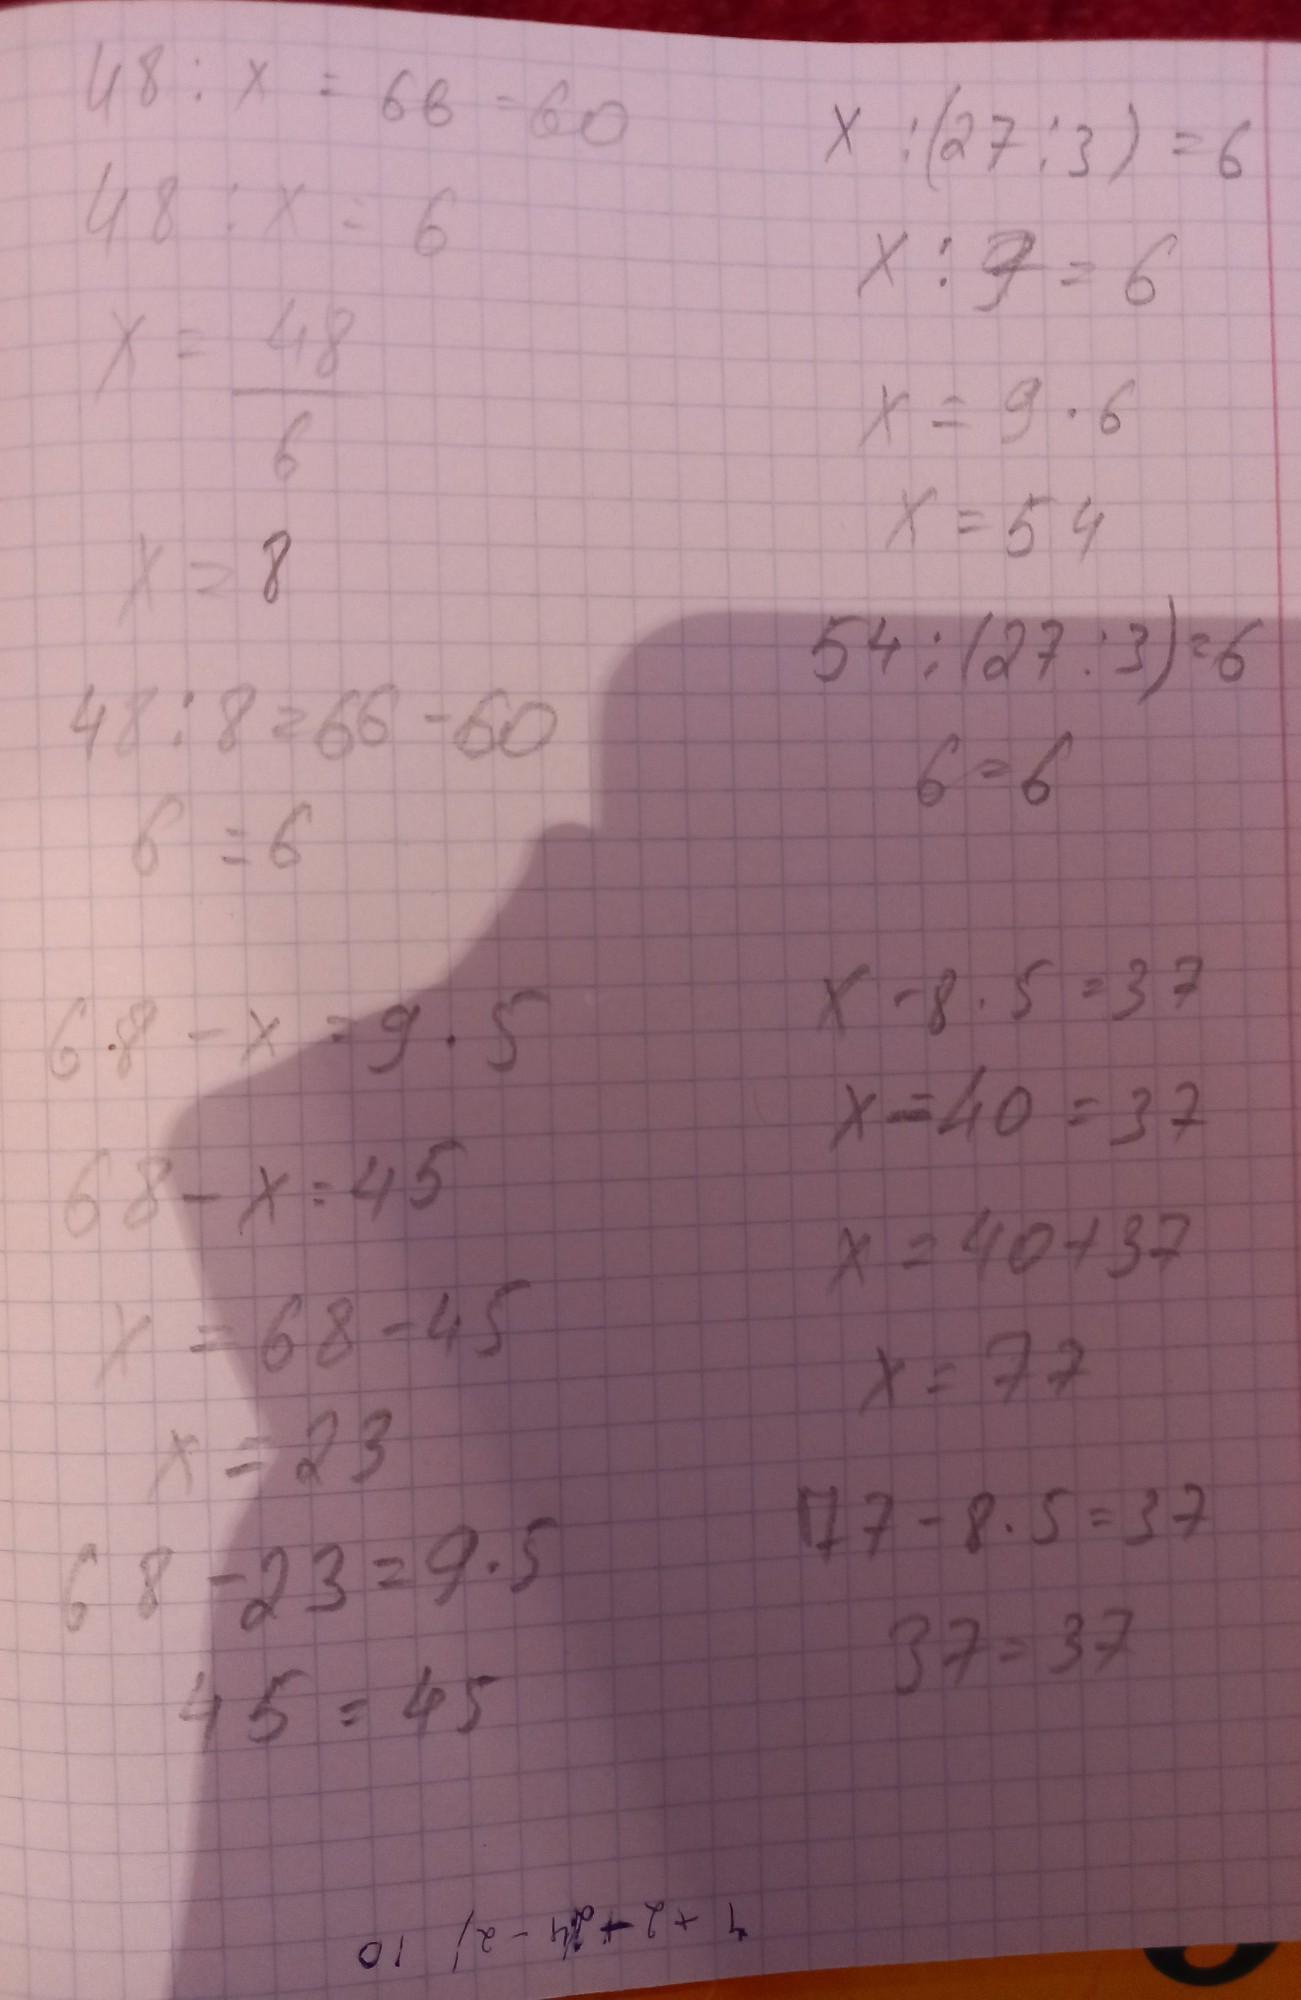 48 : x = 66 - 60
48 : x = 6
x = 48
6
x = 8
48 : 8 = 66 - 60
6 = 6
6.8 - x = 9 . 5
68 - x = 45
x = 68 - 45
x = 23
68 - 23 = 9 . 5
45 = 45
x : (27 : 3) = 6
x : 9 = 6
x = 9 . 6
x = 54
54 : (27 : 3) = 6
6 = 6
x - 8 . 5 = 37
x - 40 = 37
x = 40 + 37
x = 77
77 - 8 . 5 = 37
37 = 37
10